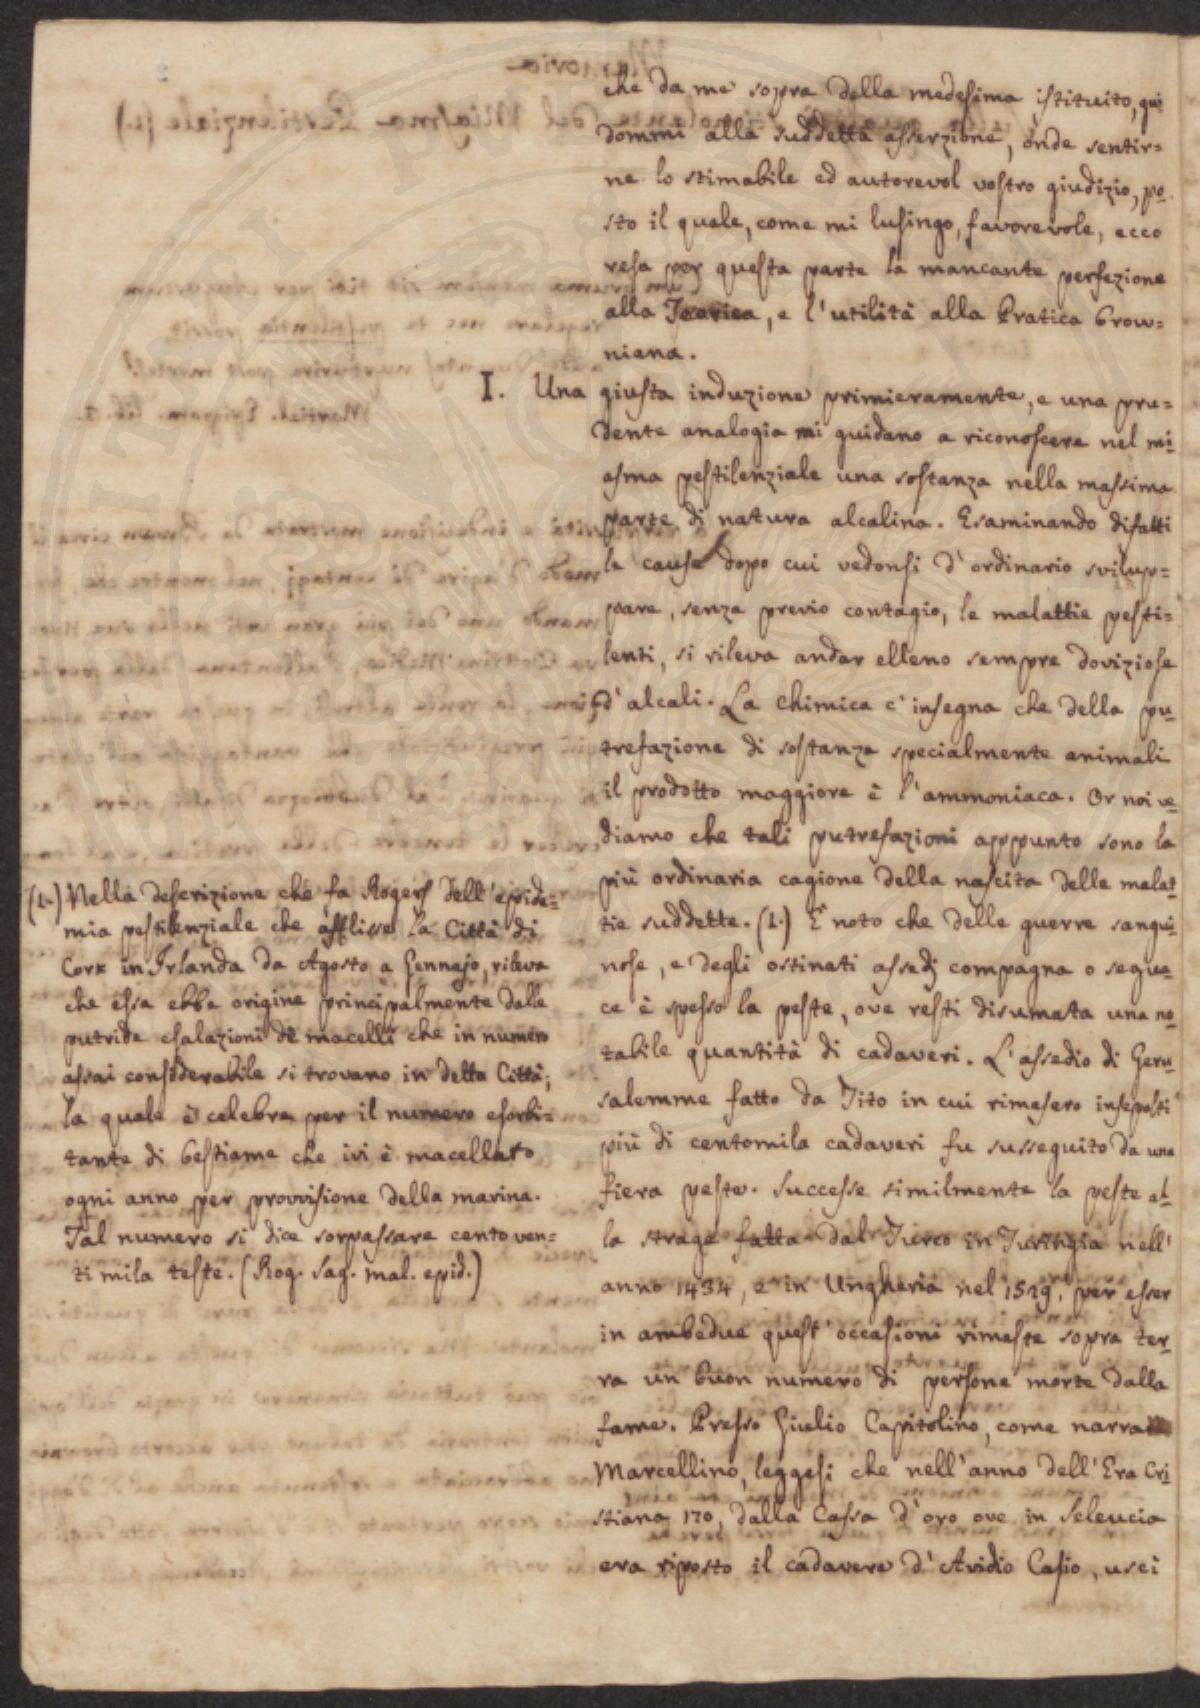 che da me sopra della medesima istituito, qui
dommi alla suddetta asserzione, onde sentir=
ne lo stimabile ed autorevol vostro giudizio, po-
sto il quale, come mi lusingo, favorevole, ecco
resa per questa parte la mancante perfezione
alla Teorica, e l'utilità alla Pratica Brow=
niana.
I. Una giusta induzione primieramente, e una pru=
dente analogia mi guidano a riconoscere nel mi-
asma pestilenziale una sostanza nella massima
parte di natura alcalina. Esaminando difatti
le cause dopo cui vedonsi d'ordinario svilup=
pare, senza previo contagio, le malattie pesti=
lenti, si rileva andar elleno sempre doviziose
d'alcali. La chimica c'insegna che della pu-
trefazione di sostanze specialmente animali
il prodotto maggiore è l'ammoniaca. Or noi ve-
diamo che tali putrefazioni appunto sono la
più ordinaria cagione della nascita delle malat-
tie suddette. (1.) È noto che delle guerre sangui-
nose, e degli ostinati assedj compagna o segua-
ce è spesso la peste, ove resti disumata una no-
tabile quantità di cadaveri. L'assedio di Geru-
salemme fatto da Tito in cui rimasero insepolti
più di centomila cadaveri fu susseguito da una
fiera peste. Successe similmente la peste al-
la strage fatta dal Turco in Turingia nell'
anno 1434, e in Ungheria nel 1529, per esser
in ambedue quest'occasioni rimaste sopra ter-
ra un buon numero di persone morte dalla
fame. Presso Giulio Capitolino, come narra
Marcellino, leggesi che nell'anno dell'Era Cri-
stiana 170, dalla Cassa d'oro ove in Seleucia
era riposto il cadavere d'Avidio Casio, uscì
(1.) Nella descrizione che fa Rogers dell'epide=
mia pestilenziale che afflisse la Città di
Cork in Irlanda da Agosto a Gennajo, rileva
che essa ebbe origine principalmente dalle
putride esalazioni de macelli che in numero
assai considerabile si trovano in detta Città;
la quale è celebre per il numero esorbi=
tante di bestiame che ivi è macellato
ogni anno per provvisione della marina.
Tal numero si dice sorpassare cento ven=
ti mila teste. (Rog. sag. mal. epid.)